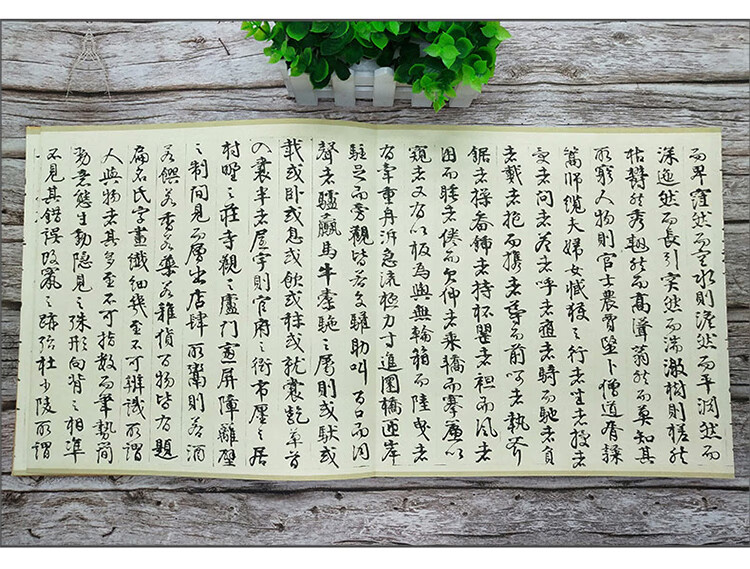 而卑窪然而空水則澹然而平淵然而
深迤然而長引突然而湍激樹則槎然
枯鬱然秀翹然而高聳蓊然而莫知其
所窮人物則官士農賈醫卜僧道胥隸
篙師纜夫婦女臧獲之行者坐者授者
受者問者答者呼者應者騎而馳者負
者戴者抱而攜者導而前呵者執斧
鋸者操畚鍤者持杯罌者袒而風者
困而睡者倦而欠伸者乘轎而搴簾以
窺者又有以板為輿無輪箱而陸曳者
有牽重舟泝急流極力寸進圜橋匝岸
駐足而旁觀皆若交驩助叫百口而同
聲者驢騾馬牛橐駝之屬則或馱或
載或臥或息或飲或秣或就囊齕草首
入囊半者屋宇則官府之衙市廛之居
村野之莊寺觀之廬門窗屏障籬壁
之制間見而層出店肆所鬻則若酒
若饌若香若藥若雜貨百物皆有題
扁名氏字畫纖細幾至不可辨識所謂
人與物者其多至不可指數而筆勢簡
勁意態生動隱見之殊形向背之相準
不見其錯誤改竄之跡殆杜少陵所謂